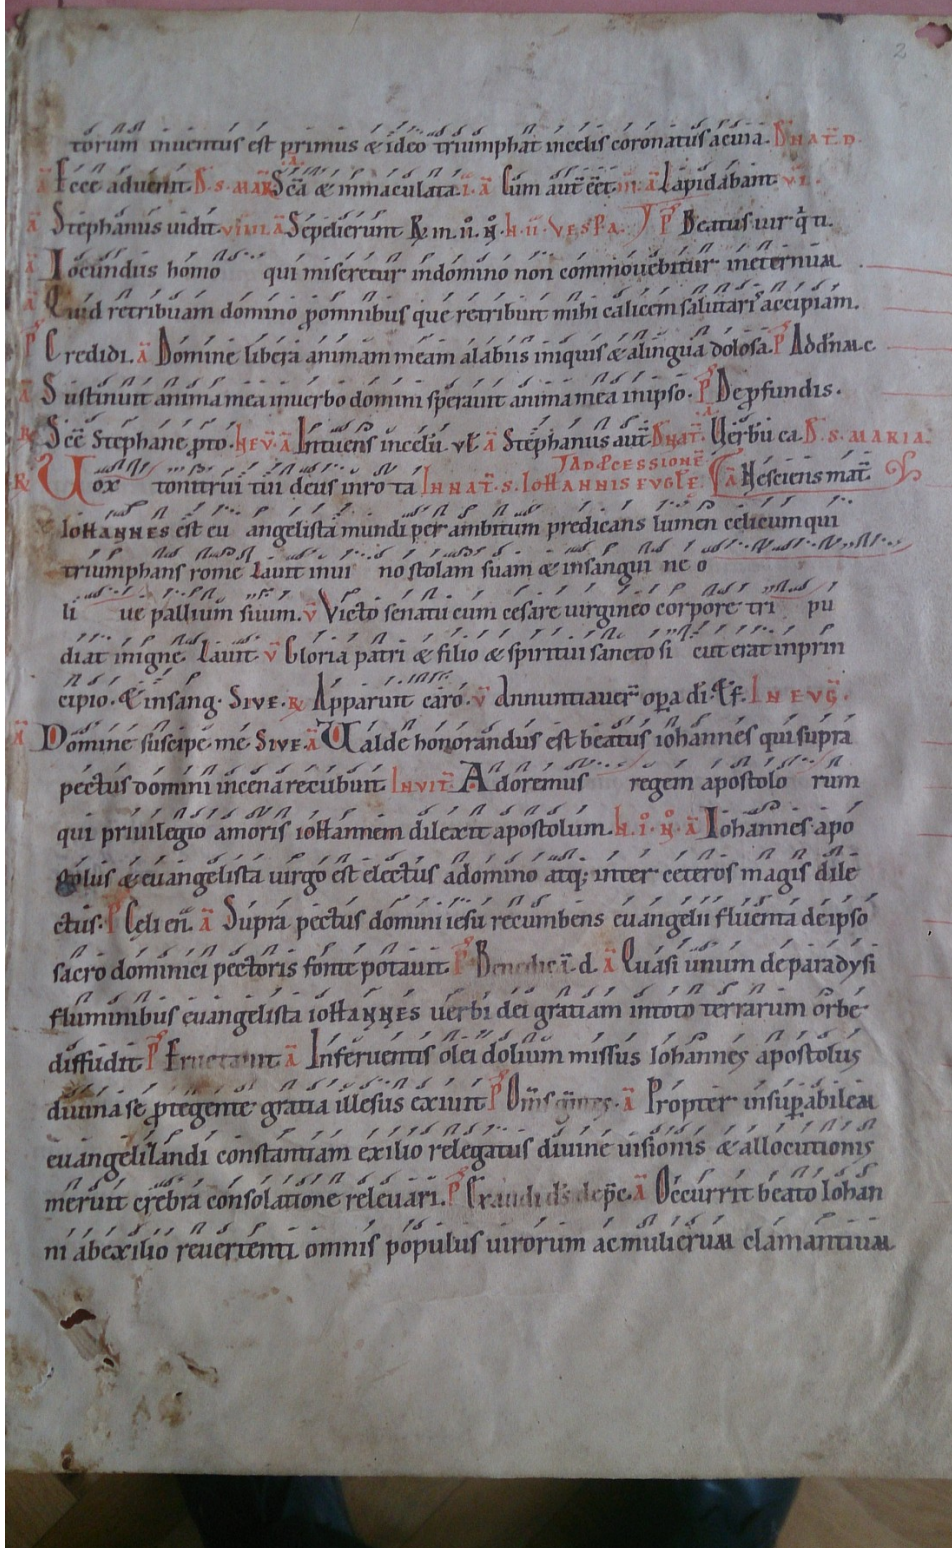 2
torum inventus est primus & ideo triumphat incelis coronatus aeuia. D NAT. D.
A Ecce advenit. D. S. MAR. Scã & inmaculata. i. ã Cum aut eet. ii. ã Lapidabant. vi.
ã Stephanus vidit. ã Sepelierunt. R. in. ii. N. h. ii. VESPA. P Beatus vir q̇ ti.
ã Iocundus homo qui miseretur indomino non commovebitur ineternum
ã Quid retribuam domino ꝓomnibus que retribuit mihi calicem salutaris accipiam.
P Credidi. ã Domine libera animam meam alabiis iniquis & alingua dolosa. P Addñm c
ã Sustinuit anima mea inverbo domini speravit anima mea inipso. P De ꝓfundis.
R Sce Stephane pro. IN EV. ã Intuens incelũ vł ã Stephanus aut. D NAT. Verbũ ca. D. S. MARIA.
AD PCESSIONE
R Vox tonitrui tui deus inro ta IN NAT. S. IOHANNIS EVGLE. ã Nesciens mat
IOHANNES est eu angelista mundi per ambitum predicans lumen celicum qui
triumphans rome Lavit invi no stolam suam & insangui ne o
li ve pallium suum. v Victo senatu cum cesare virgineo corpore tri pu
diat inigne. Lavit v Gloria patri & filio & spiritui sancto si cut erat inprin
cipio. & insang. SIVE. R Apparuit caro. v Annuntiaver opa di. & f. IN EVG.
ã Domine suscipe me SIVE. ã Valde honorandus est beatus iohannes qui supra
pectus domini incena recubuit INVIT. Adoremus regem apostolo rum
qui privilegio amoris iohannem dilexit apostolum. h. i. N. ã Iohannes apo
stolus & evangelista virgo est electus adomino atq; inter ceteros magis dile
ctus. P Celi en̄. ã Supra pectus domini iesu recumbens evangelii fluenta deipso
sacro dominici pectoris fonte potavit. P Benedicã. d. ã Quasi unum de paradysi
fluminibus evangelista iohannes verbi dei gratiam intoto terrarum orbe
diffudit P Eructavit ã Inferventis olei dolium missus Iohannes apostolus
divina se ꝓtegente gratia illesus exivit P Oms gentes. ã Propter insupabilem
evangelilandi constantiam exilio relegatus divine visionis & allocutionis
meruit crebra consolatione relevari. P Exaudi ds depc. ã Occurrit beato Iohan
ni abexilio revertenti omnis populus virorum ac mulierum clamantium